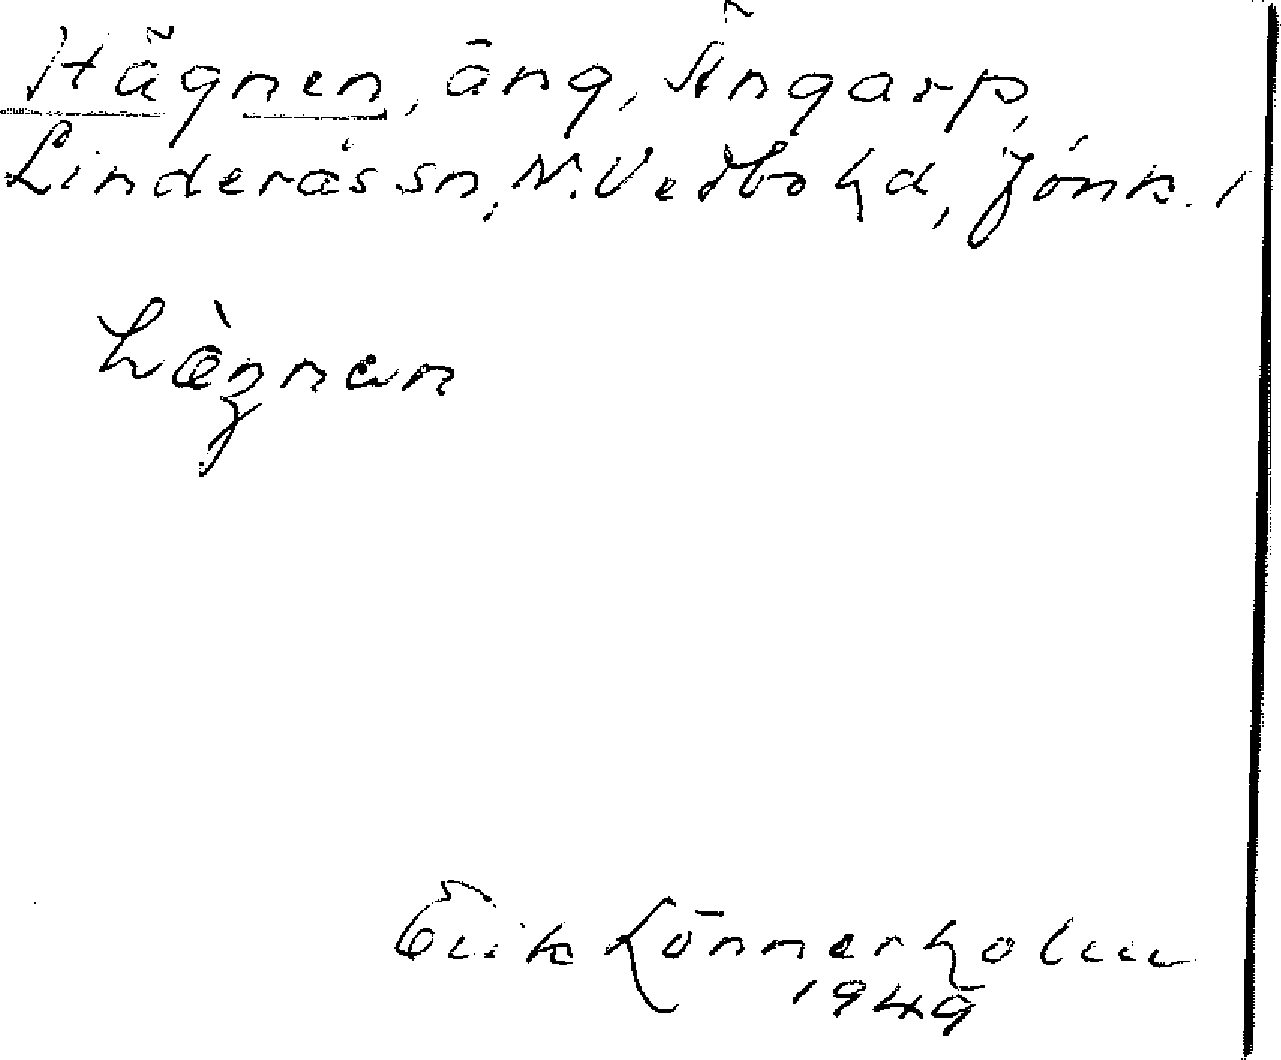 Hägnen, äng, Ängarp,
Linderås sn, N. Vedbo hd, Jönk. l
hæ̀ŋnan
Erik Lönnerholm
1949